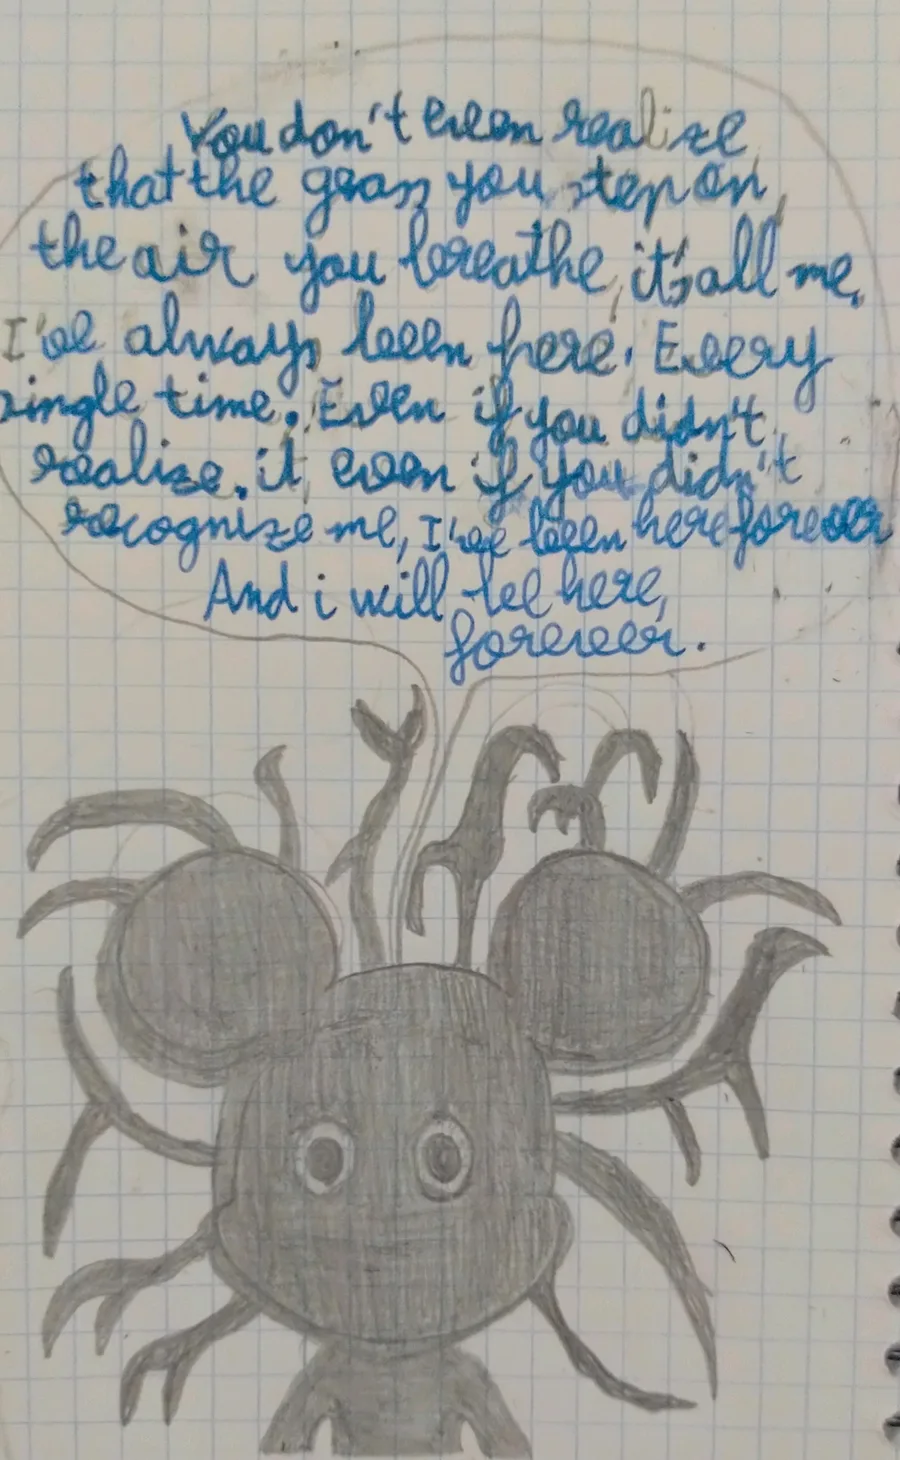 You don't even realize
that the grass you step on,
the air you breathe, it's all me.
I've always been here. Every
single time. Even if you didn't
realize it, even if you didn't
recognize me, I've been here forever
And i will be here,
forever.